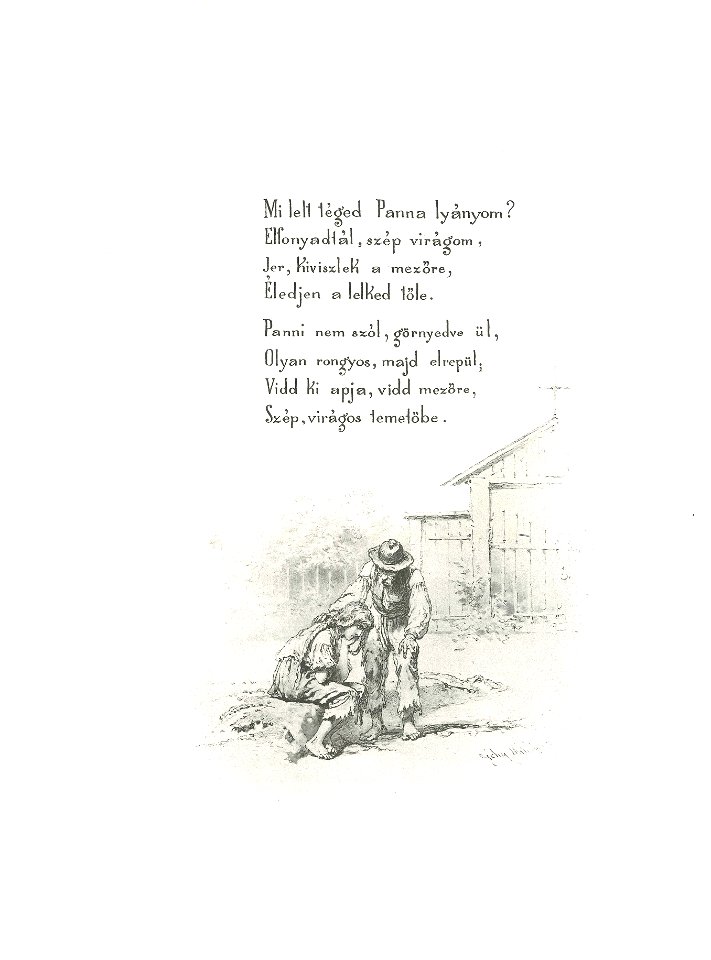 Mi lelt téged Panna lyányom?
Elfonyadtál, szép virágom,
Jer, kiviszlek a mezőre,
Éledjen a lelked tőle.
Panni nem szól, görnyedve ül,
Olyan rongyos, majd elrepül;
Vidd ki apja, vidd mezőre,
Szép, virágos temetőbe.